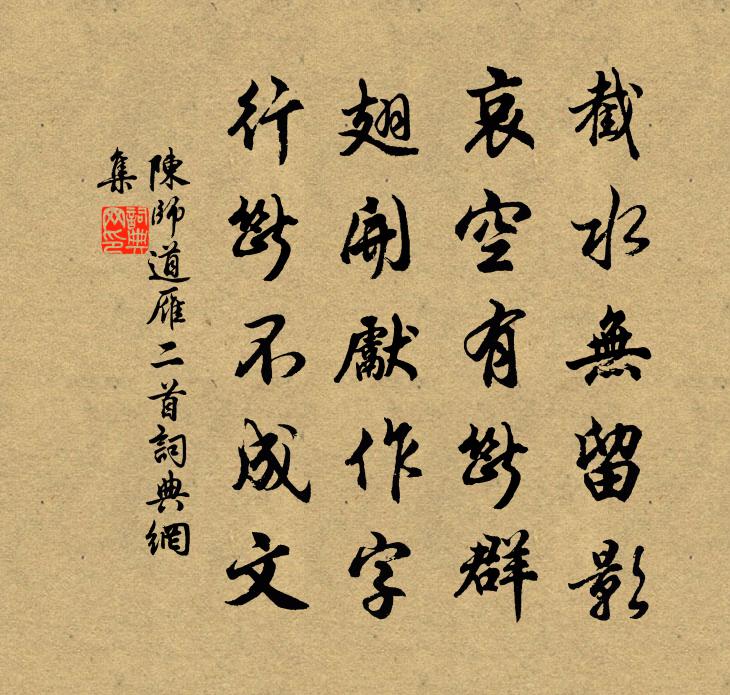 截水無留影
哀空有斷群
翅開獻作字
行斷不成文
陳師道雁二首詞典網
集
詞典
网印